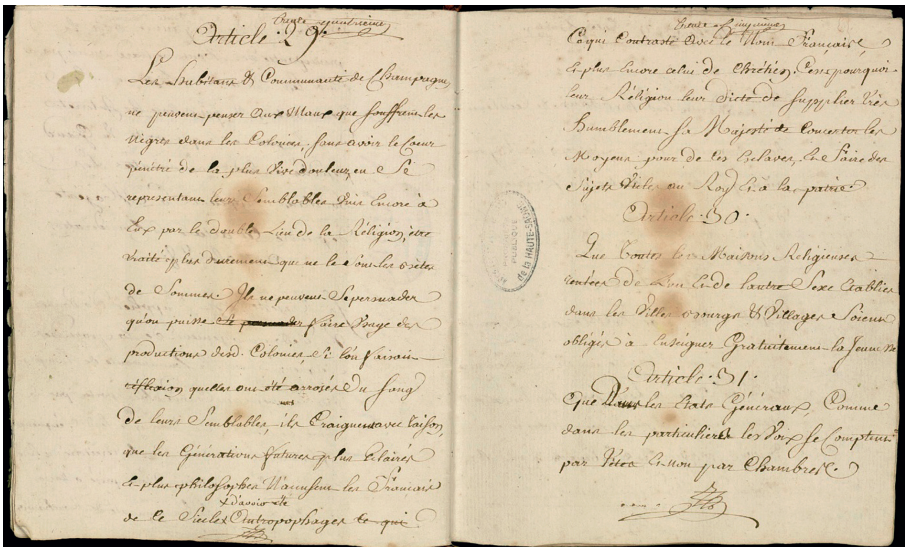 trente quatrieme
Article : 29
Les habitans & Communauté de Champagney
ne peuvent penser aux Maux que souffrent les
Négres dans les Colonies, sans avoir le Coeur
pénétré de la plus Vive douleur, en Se
representant leurs Semblables Unis Encore à
Eux par le double Lien de la Réligion, être
traités plus durement que ne le Sont les bêtes
de Sommes. Ils ne peuvent Se persuader
qu'on puisse Se persuader faire Usage des
productions desd. Colonies, Si l'on faisait
réflexion quelles ont été arrosés Du Sang
de leurs Semblables, ils Craignent avec raison,
que les Générations futures plus Eclairés
& plus philosophes N'accusent les Français
x d'avoir été
de ce Siecle x Antropophages ce qui
trente Cinquieme
Ce qui Contraste avec le Nom Français,
& plus Encore celui de Chrétien. C'est pourquoi
leur Réligion leur dicte de Supplier très
humblement Sa Majesté de Concerter les
Moyens pour de ces Esclaves, En Faire des
Sujets Utiles au Roy & à la patrie.
Article : 30
Que toutes les Maisons Religieuses
rentées de l'un & de l'autre Sexe Etablies
dans les Villes bourgs & Villages Soient
obligés à Enseigner Gratuitement la Jeun
Article : 31
Que Dans les Etats Généraux, Comme
dans les particuliers les Voix se Comptent
par têtes & non par Chambres
PUBLIQUE
de la HAUTE-SAÔNE